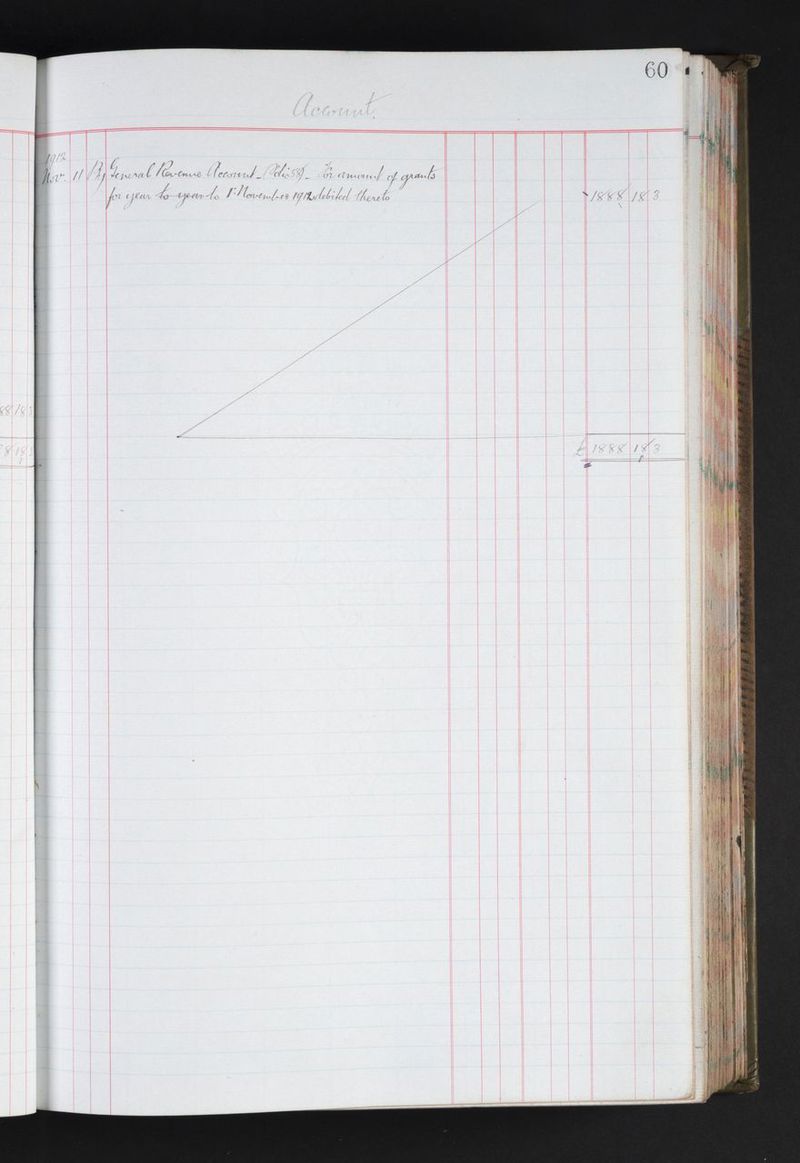 60
Account.
1912
Nov. 11 By General Revenue Account - (Folio 59) - For amount of grants
for year to year to 1st November 1912 debited thereto 1888 18 3
88 18 3
£ 1888 18 3
8 18 3